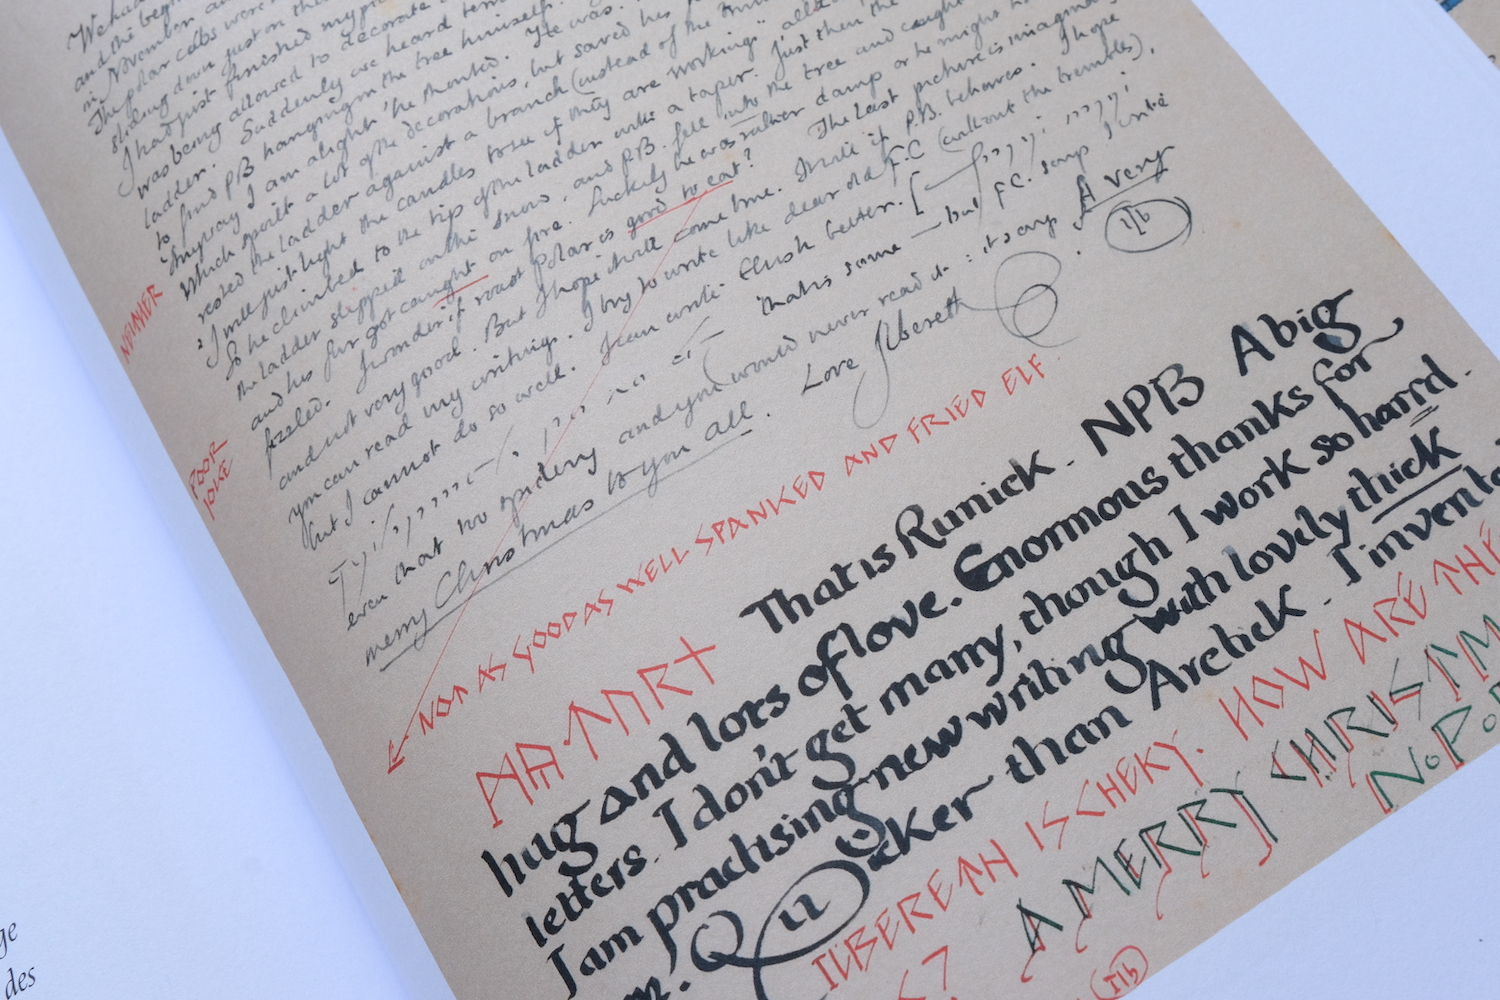 We had
and the begin
in November an
The polar cubs were
sliding down just on the
I had just finished my pic
was being allowed to decorate
ladder. Suddenly we heard terr
to find PB hanging in the tree himself.
Anyway I am alright' he shouted. He was.
Which spoilt a lot of the decorations, but saved his
rested the ladder against a branch (instead of the trunk
'I will just light the candles to see if they are working" alth
So he climbed to the tip of the ladder with a taper. Just then the
the ladder slipped on the snow, and P.B. fell into the tree and caught
and his fur got caught on fire. Luckily he was rather damp or he might h
fizzled. I wonder if roast polar is good to eat?
NEITHER
The last picture is imagina
and not very good. But I hope it will come true. It will if P.B. behaves. I hope
you can read my writing. I try to write like dear old F.C (without the trembles),
but I cannot do so well. I can write Elvish better.
That is some — but F.C. says I write
even that too spidery and you would never read it: it says A very
merry Christmas to you all. Love Ilbereth.
Ilb
POOR
JOKE
NOT AS GOOD AS WELL SPANKED AND FRIED ELF
That is Runick. NPB A big
hug and lots of love. Enormous thanks for
letters. I don't get many, though I work so harrd.
I am practising new writing with lovely thick
Quicker than Arctick. I invente
ILBERETH IS CHEKY. HOW ARE THE
A MERRY CHRISTM
N.P.B